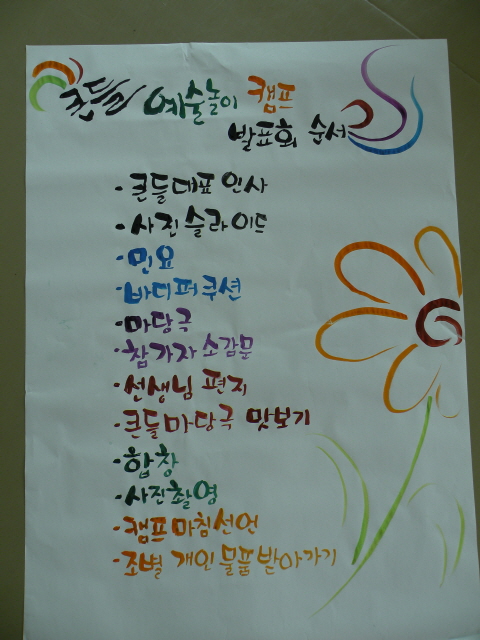 큰들 예술놀이 캠프
발표회 순서
·큰들대표 인사
·사진 슬라이드
·민요
·바디퍼쿠션
·마당극
·참가자 소감문
·선생님 편지
·큰들마당극 맛보기
·합창
·사진촬영
·캠프 마침선언
·조별 개인물품 받아가기